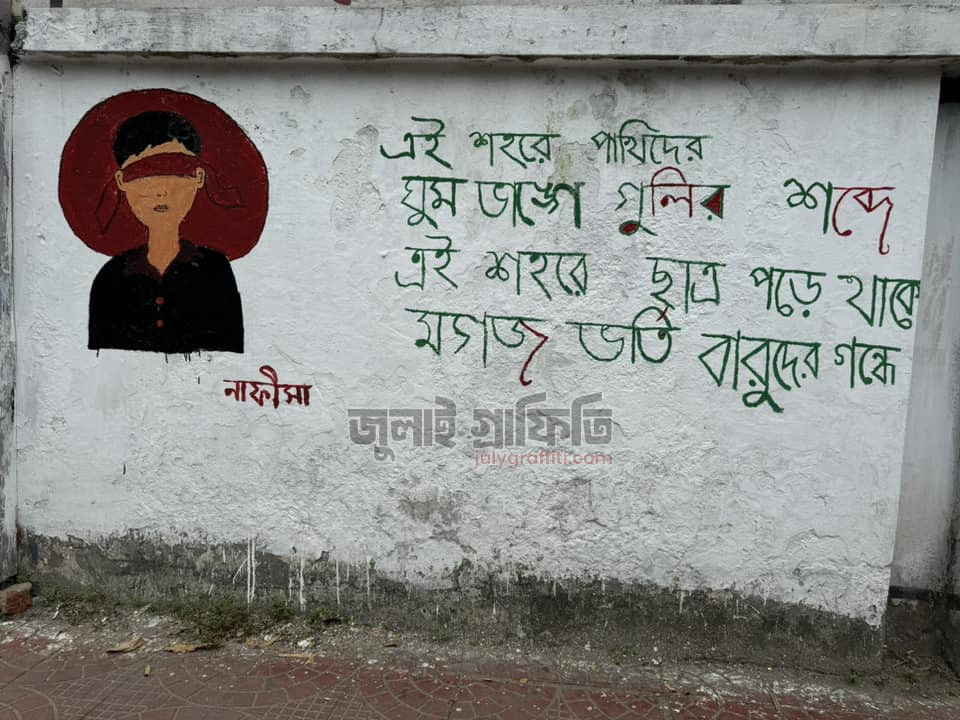 এই শহরে পাখিদের
ঘুম ভাঙ্গে গুলির শব্দে
এই শহরে ছাত্র পড়ে থাকে
মগজ ভর্তি বারুদের গন্ধে
নাফীসা
জুলাই গ্রাফিতি
julygraffiti.com